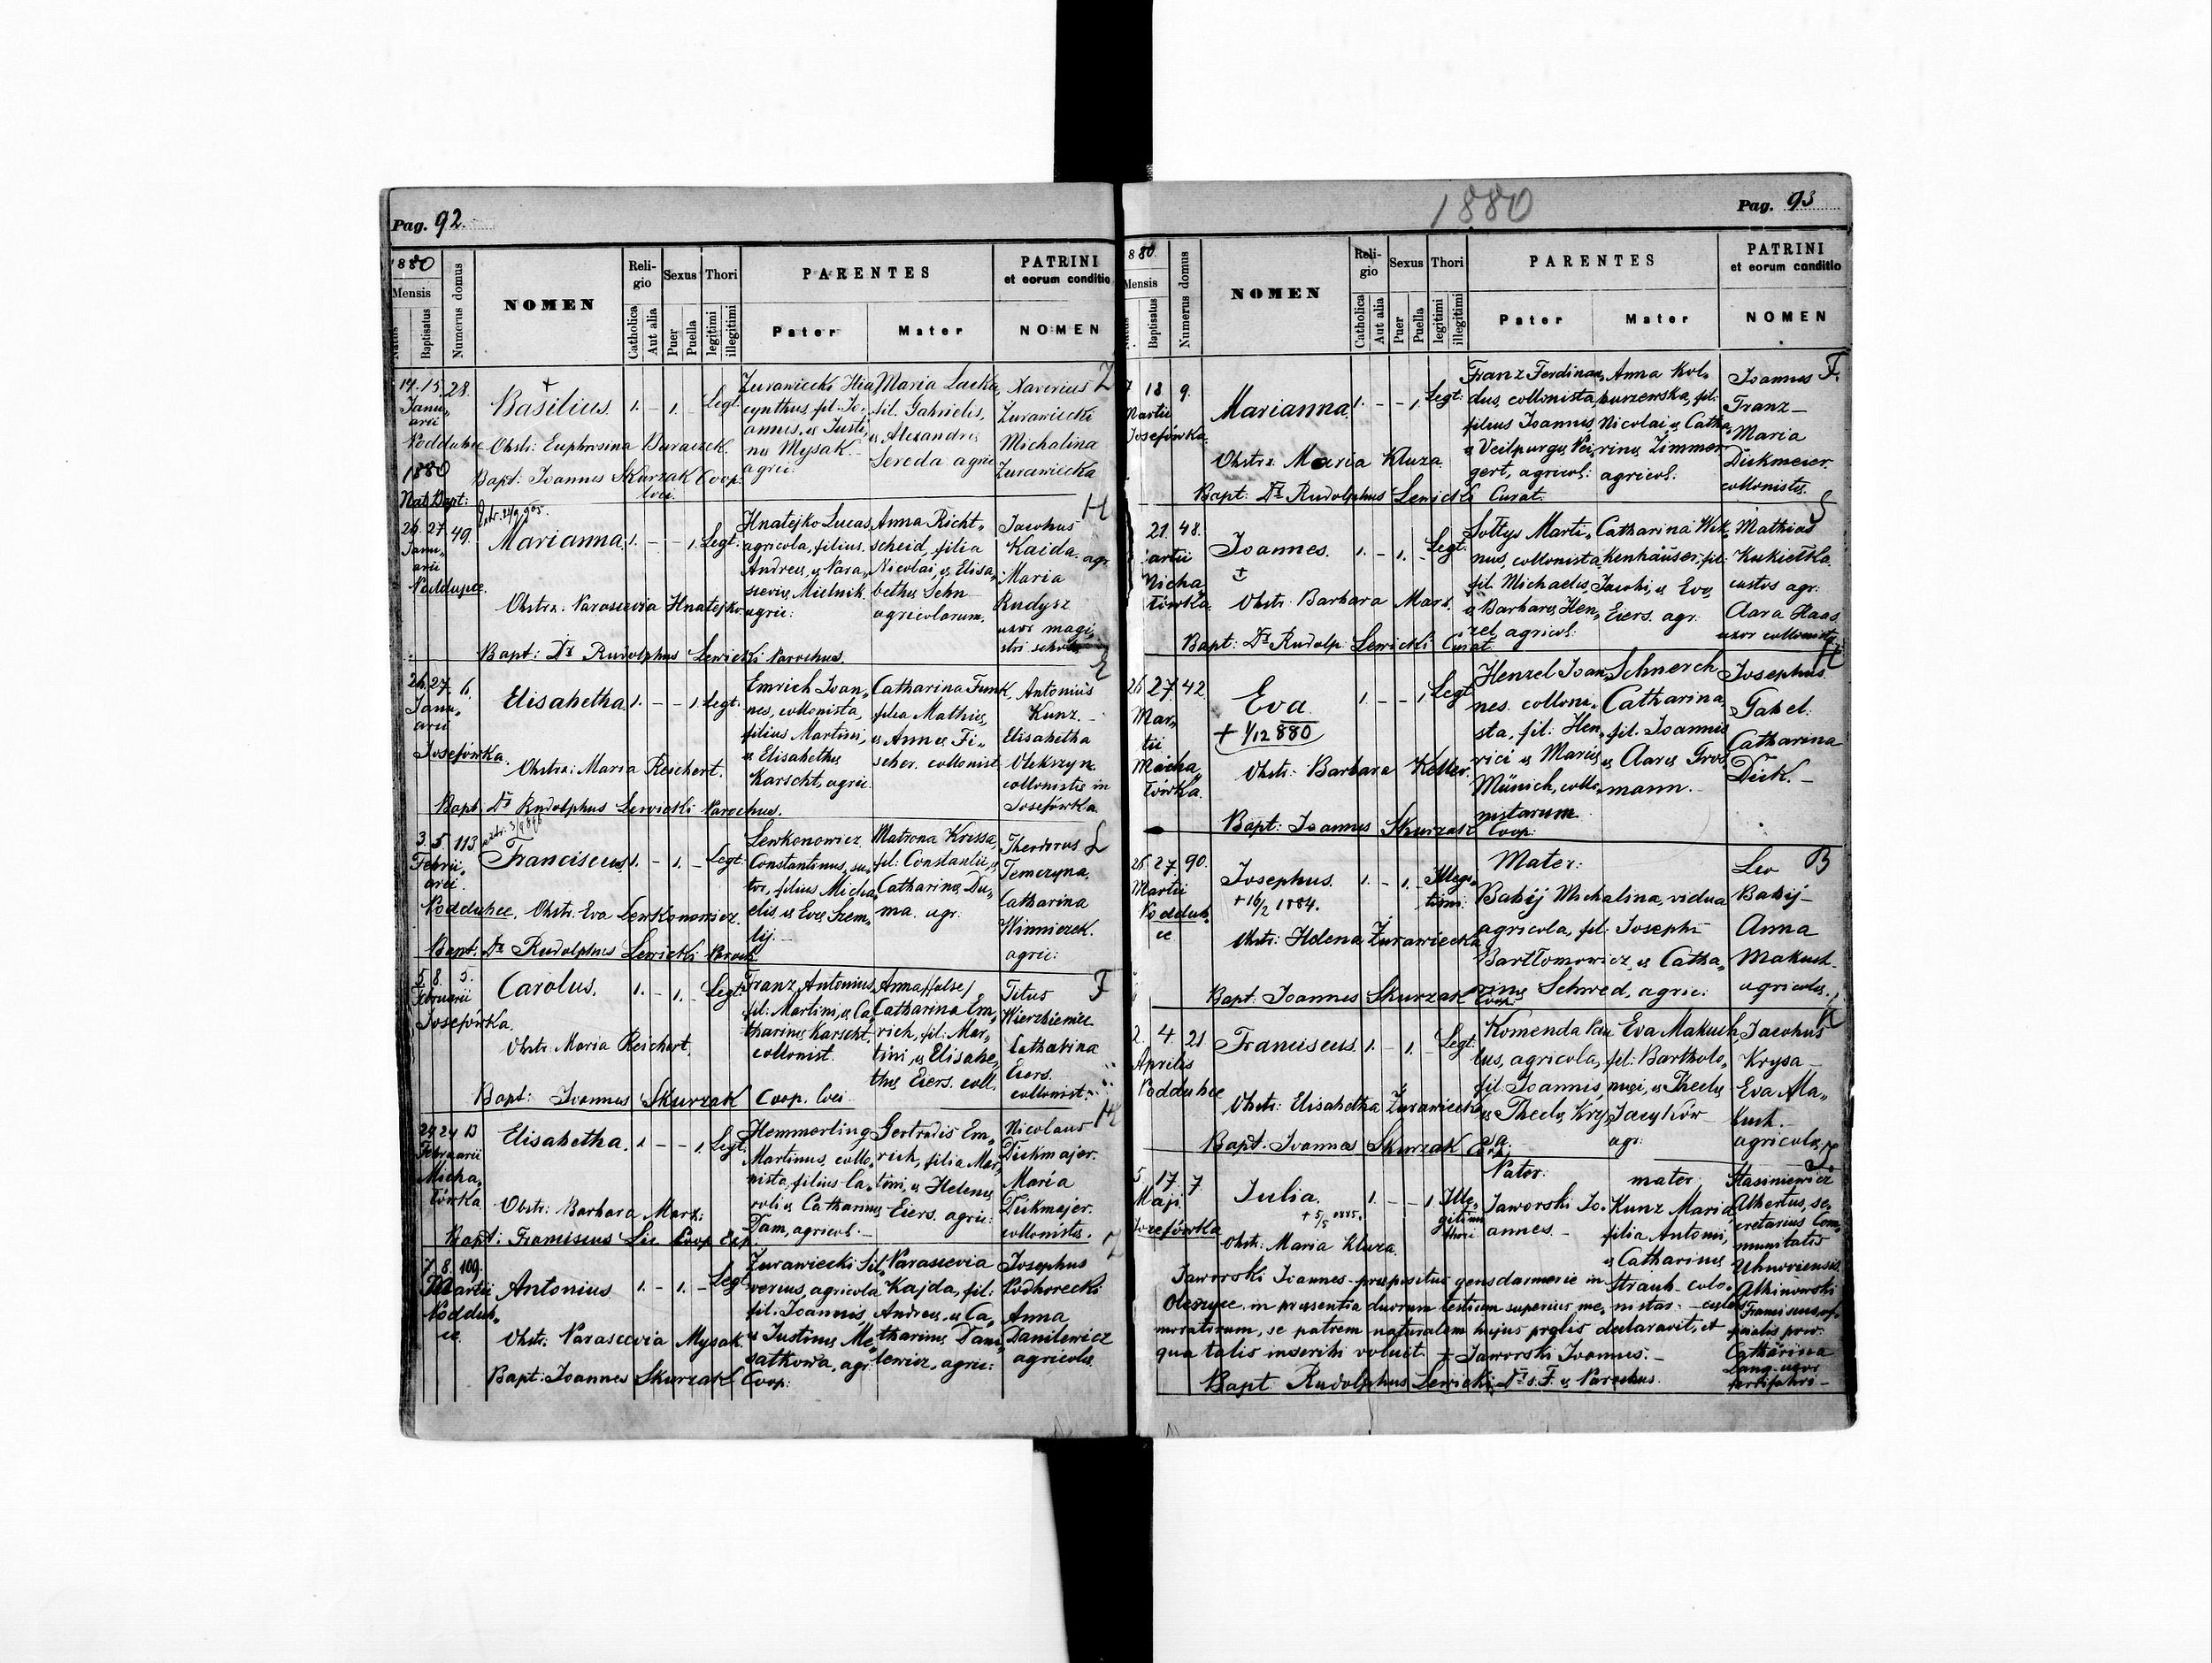 Pag. 92.
1880
Mensis
Natus
Baptisatus
Numerus domus
NOMEN
Reli-
gio
Catholica
Aut alia
Sexus
Puer
Puella
Thori
legitimi
illegitimi
PARENTES
Pater
Mater
PATRINI
et eorum conditio
NOMEN
14. 15. 28.
Janu„
arii
Poddubce
Basilius. 1. – 1. – Legt.
Obstr: Euphrosina Buraczek.
Bapt: Joannes Skurzak Coop.
loci.
Zurawiecki Hia
cynthus, fil. Jo„
annis, et Justi„
næ Mysak.
agric:
Maria Lucka,
fil. Gabrielis,
et Alexandræ
Sereda agric
Xaverius
Zurawiecki
Michalina
Zurawiecka
Z
1880
Nat. Bapt:
26. 27. 49.
Janu„
arii
Poddubce.
Marianna. 1. – – 1. Legt.
Obstr: Parascevia Hnatejko
Bapt: Dr Rudolphus Lewicki Parochus.
Hnatejko Lucas,
agricola, filius
Andreæ, et Para„
sceviæ Mielnik.
agric:
Anna Richt„
scheid, filia
Nicolai, et Elisa„
bethæ Sehn
agricolarum.
Jacobus
Kaida agr.
Maria
Rudysz
uxor magi„
stri scholæ
H
26. 27. 6.
Janu„
arii
Josefówka.
Elisabetha 1. – – 1. Legt.
Obstr: Maria Reichert.
Bapt. Dr Rudolphus Lewicki Parochus.
Emrich Joan„
nes, collonista,
filius Martini,
et Elisabethæ
Karscht, agric.
Catharina Funk,
filia Mathiæ,
et Annæ Fi„
scher. collonist.
Antonius
Kunz. –
Elisabetha
Olekszyn.
collonistæ in
Josefówka
E
3. 5. 113
Febru„
arii.
Poddubce.
Franciscus 1. – 1. – Legt.
Obstr. Eva Lewkonowicz.
Bapt. Dr Rudolphus Lewicki Paroch
Lewkonowicz
Constantinus, su„
tor, filius Micha„
elis, et Evæ Hrem„
lij. –
Matrona Krissa,
fil: Constantii, et
Catharinæ Du„
ma. agr.
Theodorus
Temczyna,
Catharina
Winniczek.
agric:
L
5. 8. 5.
Februarii
Josefówka
Carolus. 1. – 1. – Legt.
Obstr. Maria Reichert
Bapt: Joannes Skurzak Coop. loci
Franz Antonius,
fil: Martini, et Ca„
tharinæ Karscht,
collonist.
Anna /false/
Catharina Em„
rich, fil: Mar„
tini, et Elisabe„
thæ Eiers. coll.
Titus
Wierzbienicz
Catharina
Eiers.
collonist:
F
24 24 13
Februarii
Micha„
łówka
Elisabetha. 1 – – 1. Legt.
Obstr: Barbara Marx:
Bapt: Franciscus Lic Coop Exp.
Hemmerling
Martinus, collo„
nista, filius Ca„
roli et Catharinæ
Dam, agricol. –
Gertrudis Em„
rich, filia Mar„
tini, et Helenæ
Eiers. agric:
Nicolaus
Dickmajer.
Maria
Dickmajer.
collonistæ.
H
7. 8. 109.
Martii
Poddub„
ce.
Antonius 1. – 1. – Legt.
Obstr: Parascevia Mysak.
Bapt: Joannes Skurzak Coop:
Zurawiecki Sil„
verius, agricola
fil. Joannis,
et Justinæ Me„
satkowa, agr:
Parascevia
Kajda, fil:
Andreæ, et Ca„
tharinæ Dani„
lewicz, agric:
Josephus
Podhorecki
Anna
Danilewicz
agricolæ
Z
1880
Pag. 93
880.
Mensis
Baptisatus
Numerus domus
NOMEN
Reli-
gio
Catholica
Aut alia
Sexus
Puer
Puella
Thori
legitimi
illegitimi
PARENTES
Pater
Mater
PATRINI
et eorum conditio
NOMEN
18 9.
Martii
Josefówka.
Marianna. 1. – – 1. Legt.
Obstr: Maria Kluza.
Bapt: Dr Rudolphus Lewicki Curat.
Franz Ferdinan„
dus, collonista,
filius Joannis,
et Veilpurgæ Vei„
gert, agricol:
Anna Kol„
purzewska, fil:
Nicolai, et Catha„
rinæ Zimmer
agricol:
Joannes
Franz –
Maria
Dickmeier.
collonistæ.
F.
21. 48.
artii
Micha
łówka.
Joannes. 1. – 1. – Legt.
Obstr: Barbara Marx.
Bapt: Dr Rudolp. Lewicki Curat.
Sołtys Marti„
nus, collonista,
fil. Michaelis,
et Barbaræ Hen„
zel, agricol:
Catharina Wik„
kenhäuser, fil:
Jacobi, et Evæ
Eiers. agr:
Mathias
Kukiełka
custos agr:
Clara Haas
uxor collonistæ
S
26 27 42.
Mar„
tii
Micha„
łówka.
Eva. 1. – – 1. Legt
+ 1/12 880
Obstr: Barbara Keller.
Bapt: Joannes Skurzak Coop:
Henzel Joan„
nes. colloni„
sta, fil: Hen„
rici et Mariæ
Münich, collo„
nistarum
Schnerch
Catharina,
fil. Joannis
et Claræ Gros„
mann. –
Josephus
Gabel.
Catharina
Dick. –
H
26. 27. 90.
Martii
Poddub„
ce
Josephus. 1. – 1. – Illegi„
timi.
+ 16/2 1884.
Obstr: Helena Żurawiecka
Bapt: Joannes Skurzak Coop:
Mater:
Babij Michalina, vidua
agricola, fil: Josephi
Bartłomowicz, et Catha„
rinæ Schwed, agric:
Leo
Babij –
Anna
Makuch
agricolæ.
B
2. 4. 21.
Aprilis
Poddubce
Franciscus. 1. – 1. – Legt.
Obstr: Elisabetha Żurawiecka
Bapt. Joannes Skurzak
Komenda Pau
lus, agricola,
fil: Joannis,
et Theclæ Kry
sa.
Eva Makuch,
fil: Bartholo„
mæi, et Theclæ
Jacyków
agr:
Jacobus
Krysa –
Eva Ma„
kuch. –
agricolæ
K
5 17. 7
Maji
Jozefówka
Julia. 1. – – 1 Ille„
gitimi
thori
+ 5/5 1885.
Obstr: Maria Kluza.
Pater:
Jaworski Jo„
annes. –
mater:
Kunz Maria,
filia Antonii,
et Catharinæ
Straub – colo„
nistar. –
Stasiniewicz
Albertus, se„
cretarius Com„
munitatis
Uhnoviensis.
Albinowski
Franciscus
Catharina
Lang – uxor
Jaworski Joannes – præpositus gensdarmerie in
Oleszyce, in præsentia duorum testium superius me„
moratorum, se patrem naturalem hujus prolis declaravit, et
qua talis inscribi voluit. + Jaworski Joannes. –
Bapt. Rudolphus Lewicki, Dr s. T. et Parochus.